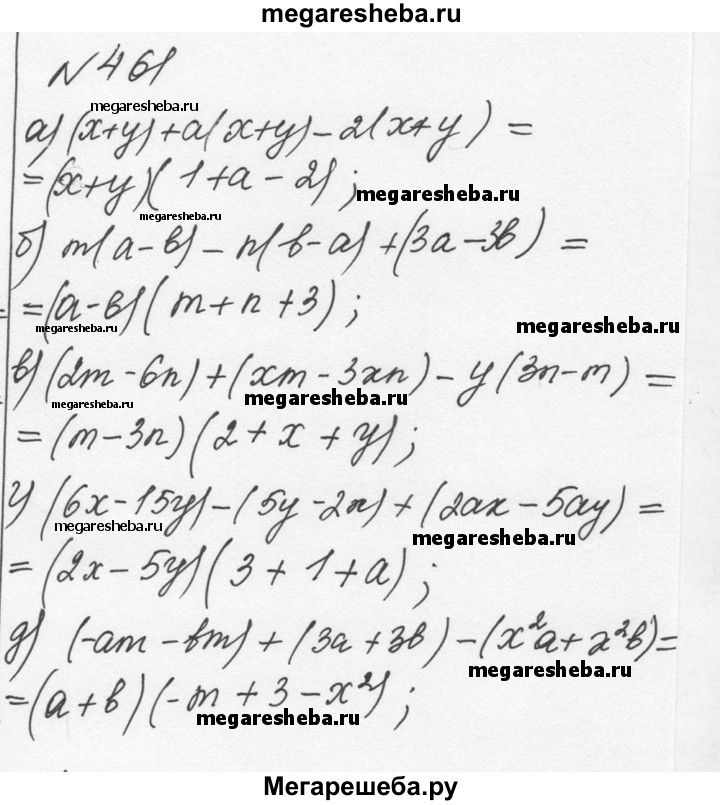 megaresheba.ru
№461
megaresheba.ru
а) (x+y)+a(x+y)-2(x+y)=
=(x+y)(1+a-2);
megaresheba.ru
megaresheba.ru
б) m(a-в)-n(в-a)+(3a-3в)=
=(a-в)(m+n+3);
megaresheba.ru
megaresheba.ru
в) (2m-6n)+(xm-3xn)-y(3n-m)=
megaresheba.ru
megaresheba.ru
=(m-3n)(2+x+y);
г) (6x-15y)-(5y-2x)+(2ax-5ay)=
megaresheba.ru
megaresheba.ru
=(2x-5y)(3+1+a);
д) (-am-вm)+(3a+3в)-(x²a+x²в)=
megaresheba.ru
=(a+в)(-m+3-x²);
megaresheba.ru
Мегарешеба.ру